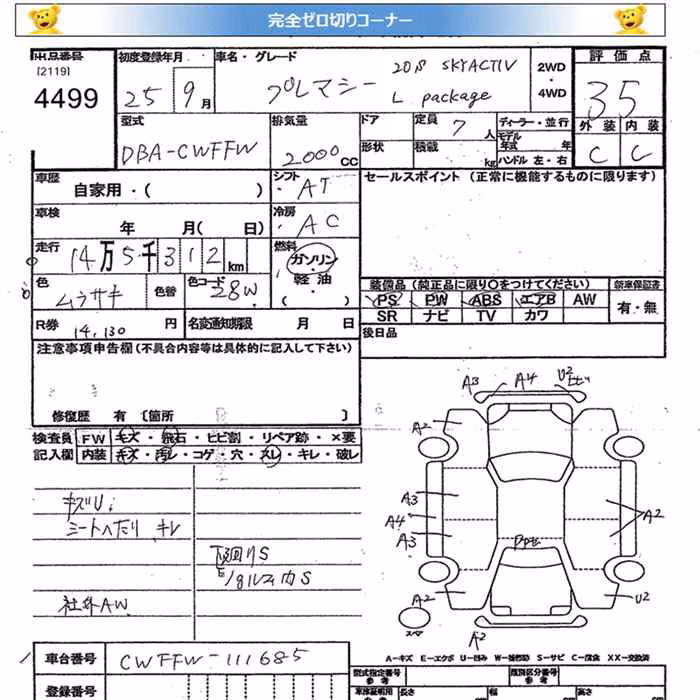 完全ゼロ切りコーナー
出品番号
[2119]
4499
初度登録年月
25 9月
車名・グレード
プレマシー
20S SKYACTIV
L package
2WD
・
4WD
評価点
3.5
外装 内装
C C
型式
DBA-CWFFW
排気量
2000cc
ドア
形状
定員 7 人
積載 kg
ディーラー・並行
モデル
年式 年
ハンドル 左・右
車歴
自家用・( )
シフト
・AT
セールスポイント (正常に機能するものに限ります)
車検
年 月( 日)
冷房
・AC
走行
14万5千312km
燃料
ガソリン
・
軽油
・( )
色
ムラサキ
色替
色コード
28W
装備品(純正品に限り〇をつけてください)
新車保証書
PS PW ABS エアB AW
SR ナビ TV カワ
有・無
R券
14,130円
名変通知期限 月 日
後日品
注意事項申告欄(不具合内容等は具体的に記入して下さい)
修復歴 有 [箇所 ]
検査員
記入欄
FW キズ・飛石・ヒビ割・リペア跡・×要
内装 キズ・汚レ・コゲ・穴・スレ・キレ・破レ
キズU
シートヘたり キレ
下回りS
モノコルスィ内S
社外AW
A3 A4 U2
A2
A3
A4
A3
A2
A2
U2
A2
スペア
A-キズ E-エクボ U-凹み W-補修跡 S-サビ C-腐食 XX-交換済
車台番号
CWFFW-111685
登録番号
型式指定番号
参考
類別区分番号
参考
車庫証明用
参考
長さ
幅
高さ
cm